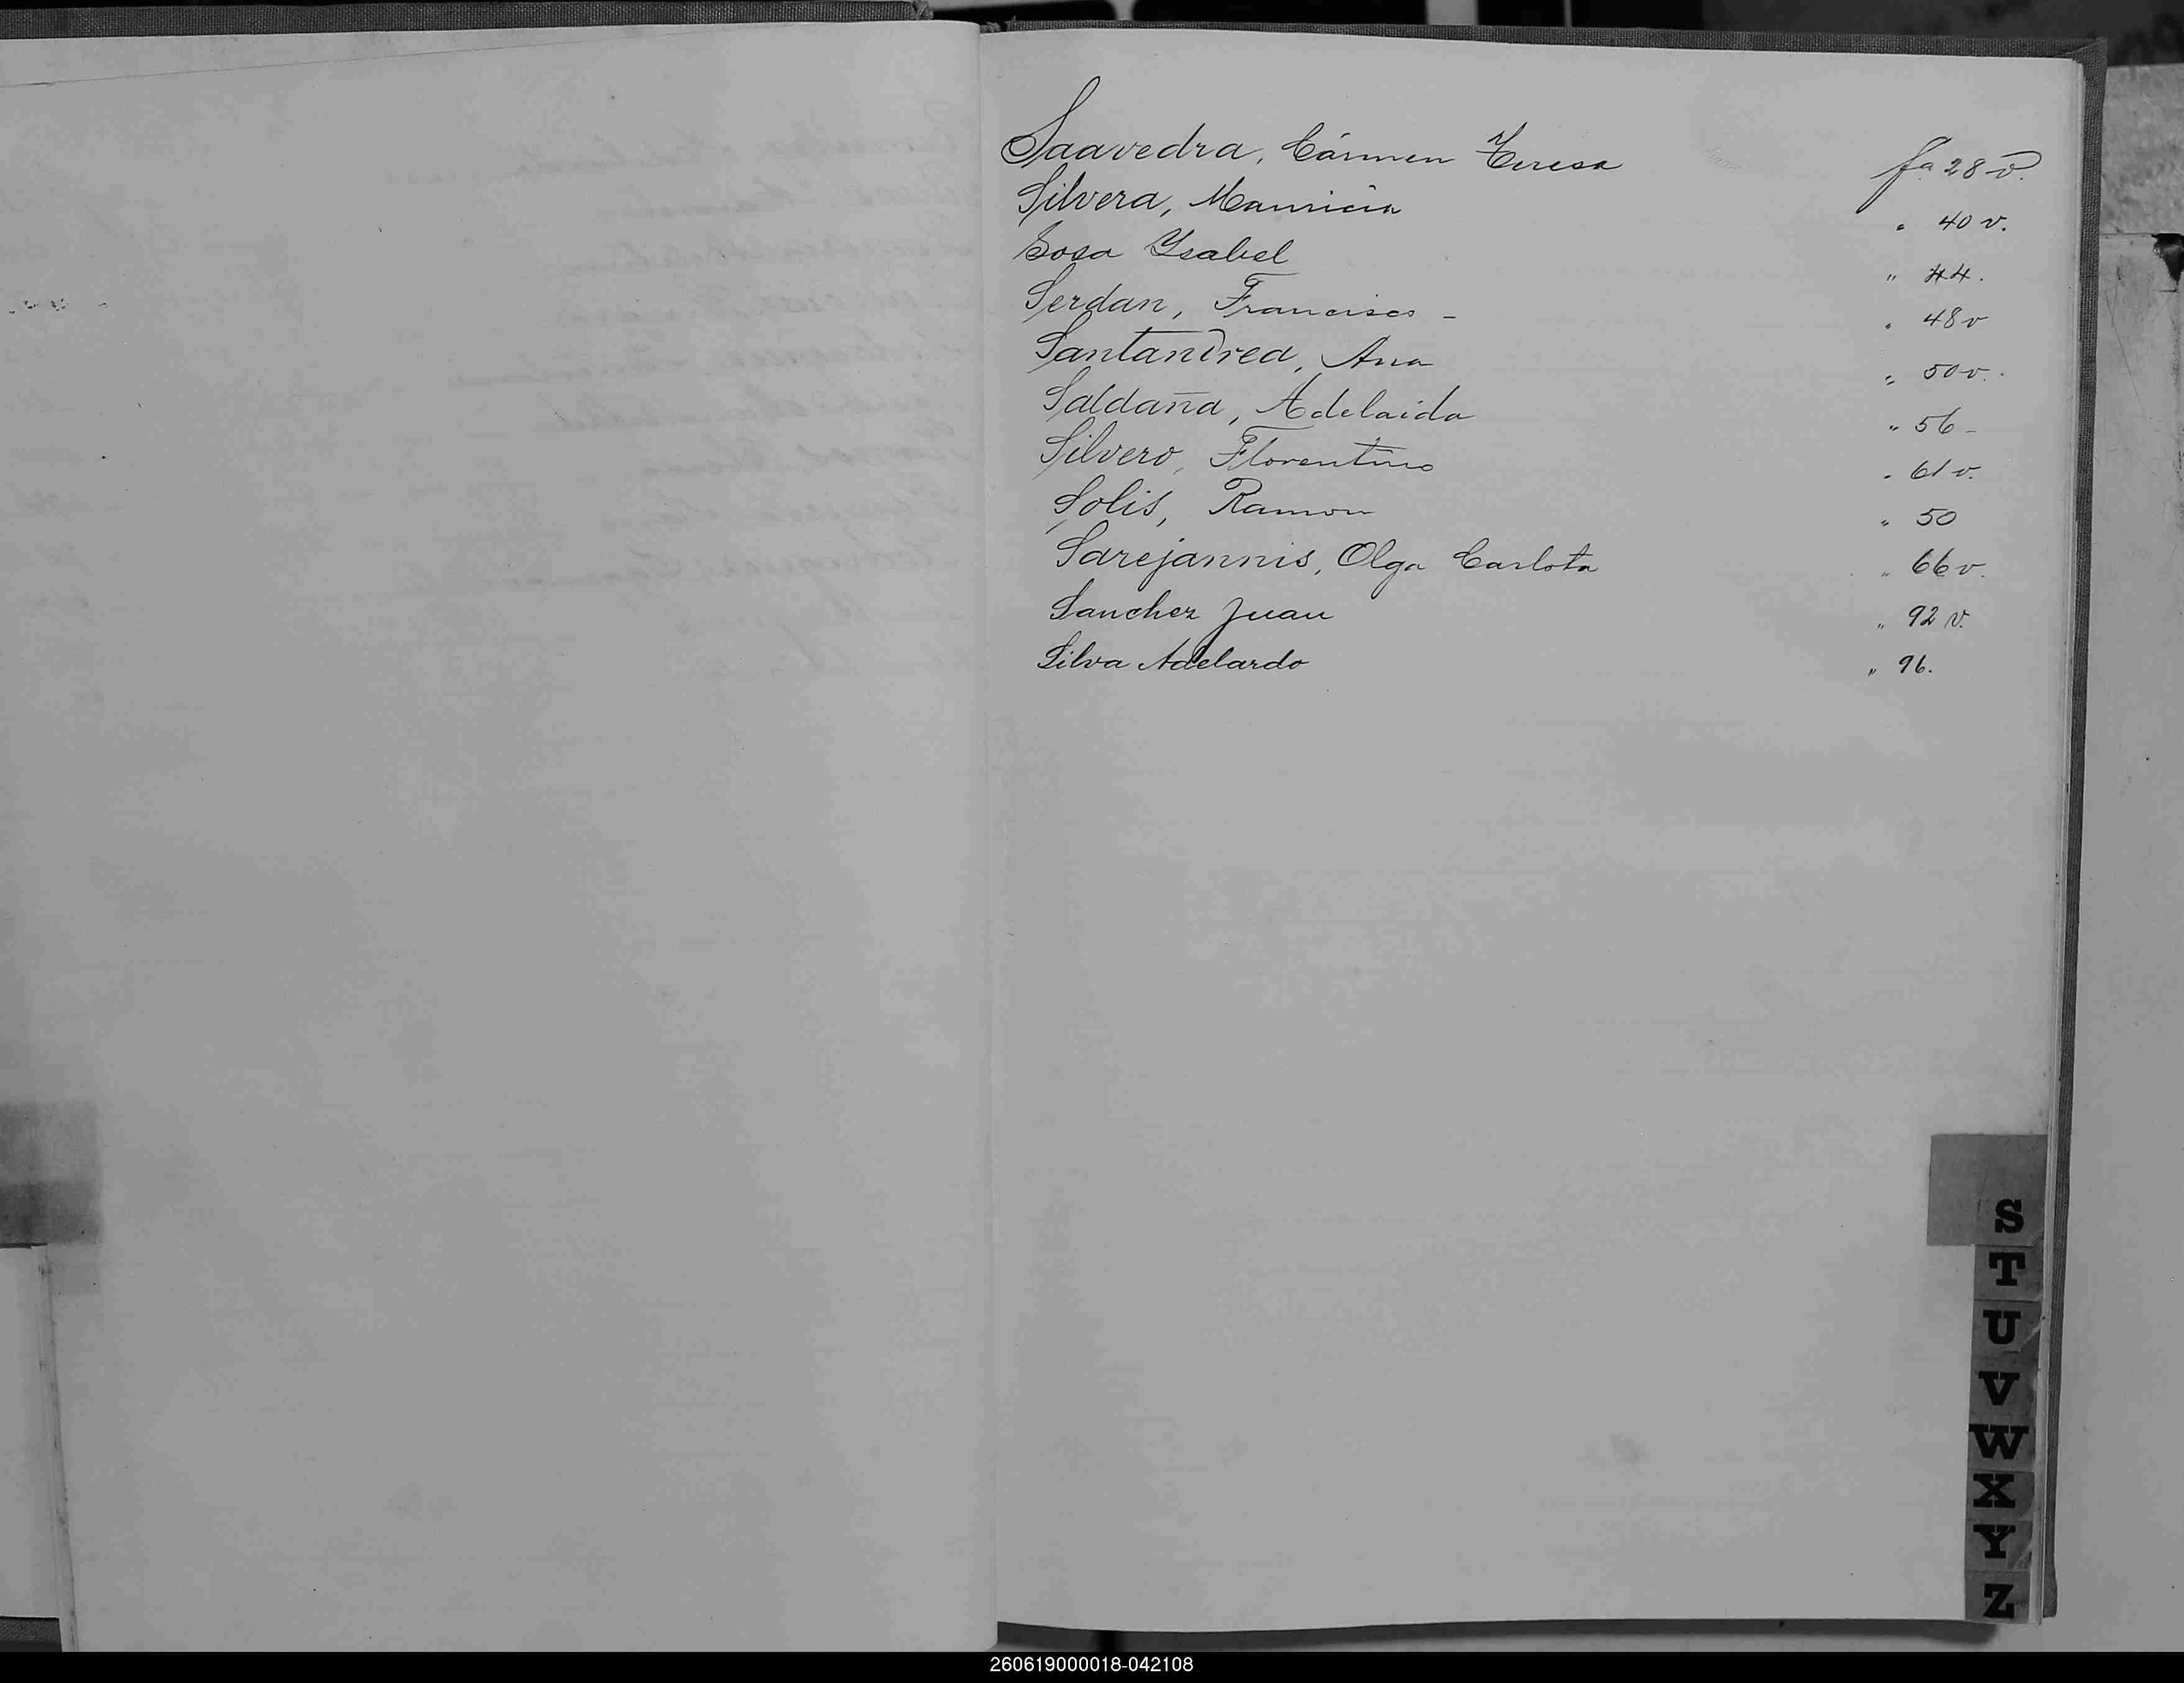 Saavedra, Cármen Teresa fa 28 v.
Silvera, Mauricia " 40 v.
Sosa Ysabel " 44.
Serdan, Francisco - " 48 v
Santandrea, Ana " 50 v.
Saldaña, Adelaida " 56 -
Silvero, Florentino " 61 v.
Solis, Ramon " 50
Sarejannis, Olga Carlota " 66 v.
Sanchez Juan " 92 v.
Silva Adelardo " 96.
S
T
U
V
W
X
Y
Z
260619000018-042108